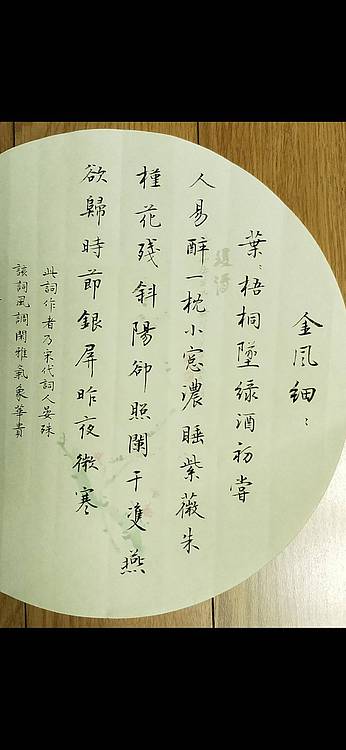 金風細：
葉：梧桐墜绿酒初嘗
人易醉一枕小窓濃睡紫薇朱
槿花殘斜陽卻照闌干雙燕
欲歸時節銀屏昨夜微寒
此詞作者乃宋代詞人晏殊
該詞風調閑雅氣象華貴